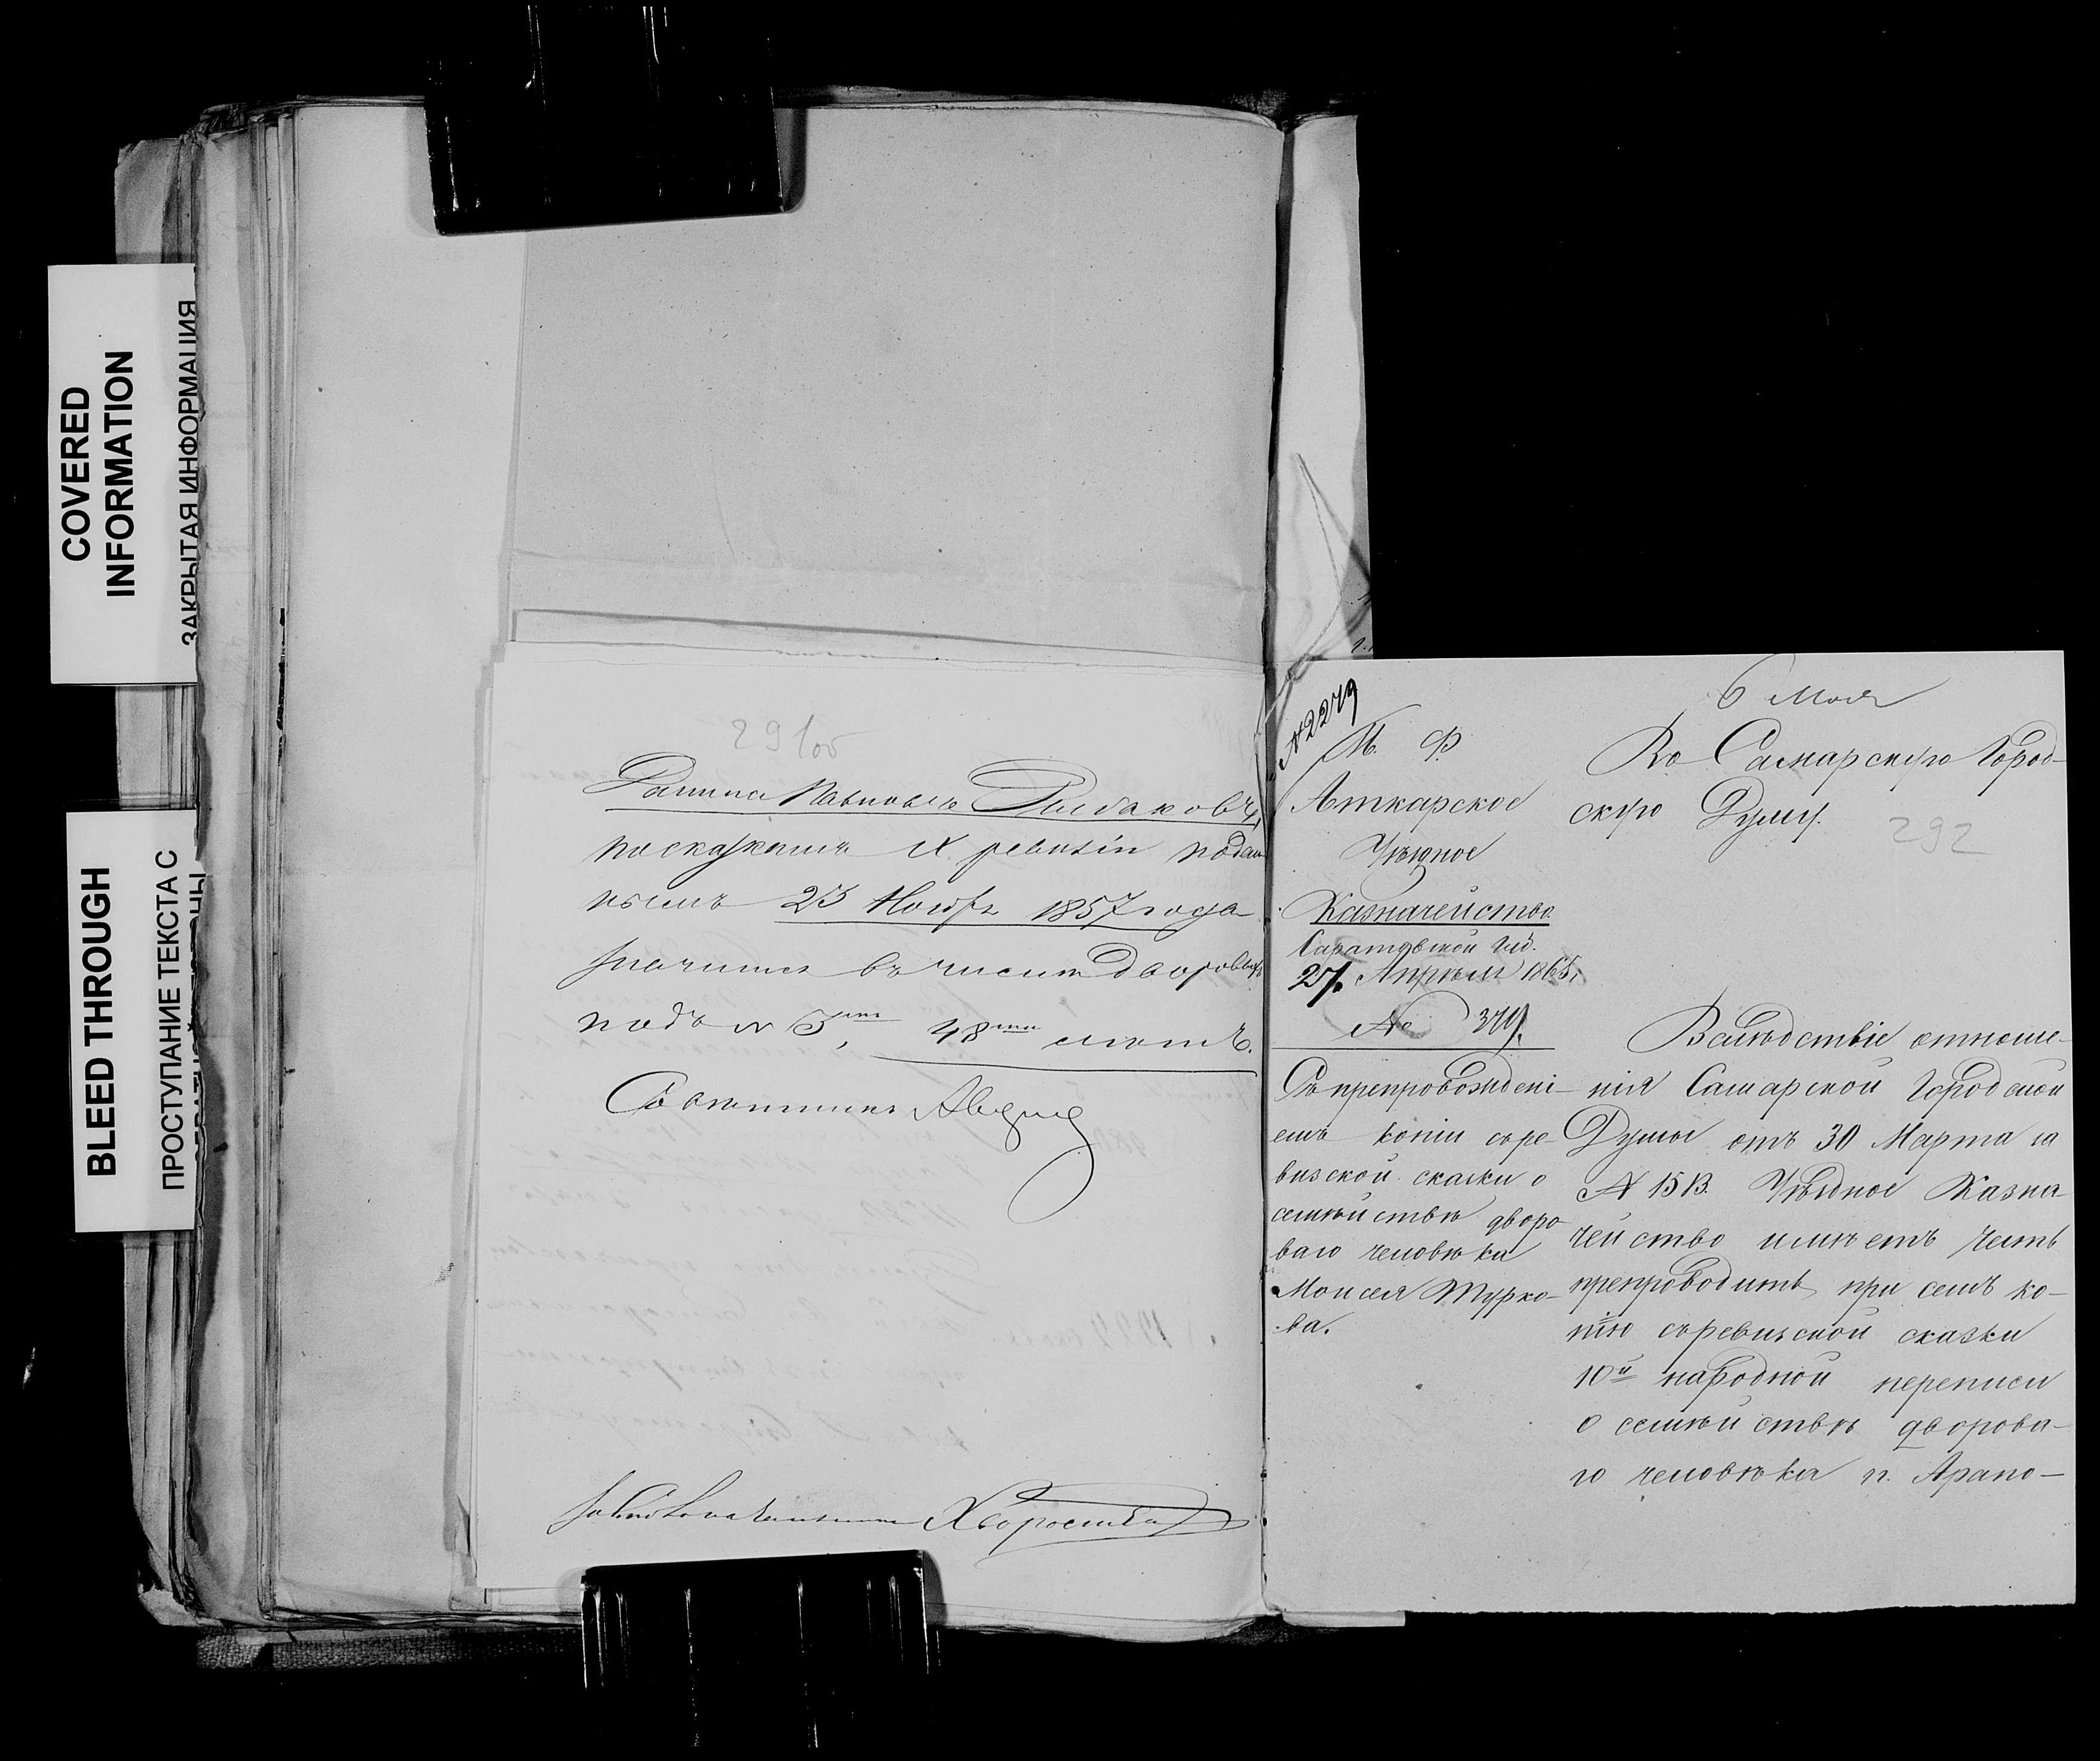 COVERED
INFORMATION
ЗАКРЫТАЯ ИНФОРМАЦИЯ
BLEED THROUGH
ПРОСТУПАНИЕ ТЕКСТА С
291об
Павловъ Рыбаковъ,
по сказкамъ X ревизіи подан
нымъ 23 Ноября 1857 года
значится въ числѣ дворовыхъ
подъ № 3мъ, 48ми лѣтъ.
Хворостин
№ 2279
М. Ф.
Аткарское
Уѣздное
Казначейство
Саратовской губ.
27. Апрѣля 1865 г.
№ 3749.
Съ препровожденi-
емъ копiи съ ре-
визской сказки о
семействѣ дворо
ваго человѣка
Моисея Турко-
ва.
6 Мая
Въ Самарскую Город-
скую Думу.
292
Вслѣдствiе отноше-
нiя Самарской Городской
Думы отъ 30 Марта за
№ 1513. Уѣздное Казна
чейство имѣетъ честь
препроводить при семъ ко-
пiю съ ревизской сказки
10й народной переписи
о семействѣ дворова-
го человѣка г. Арапо-